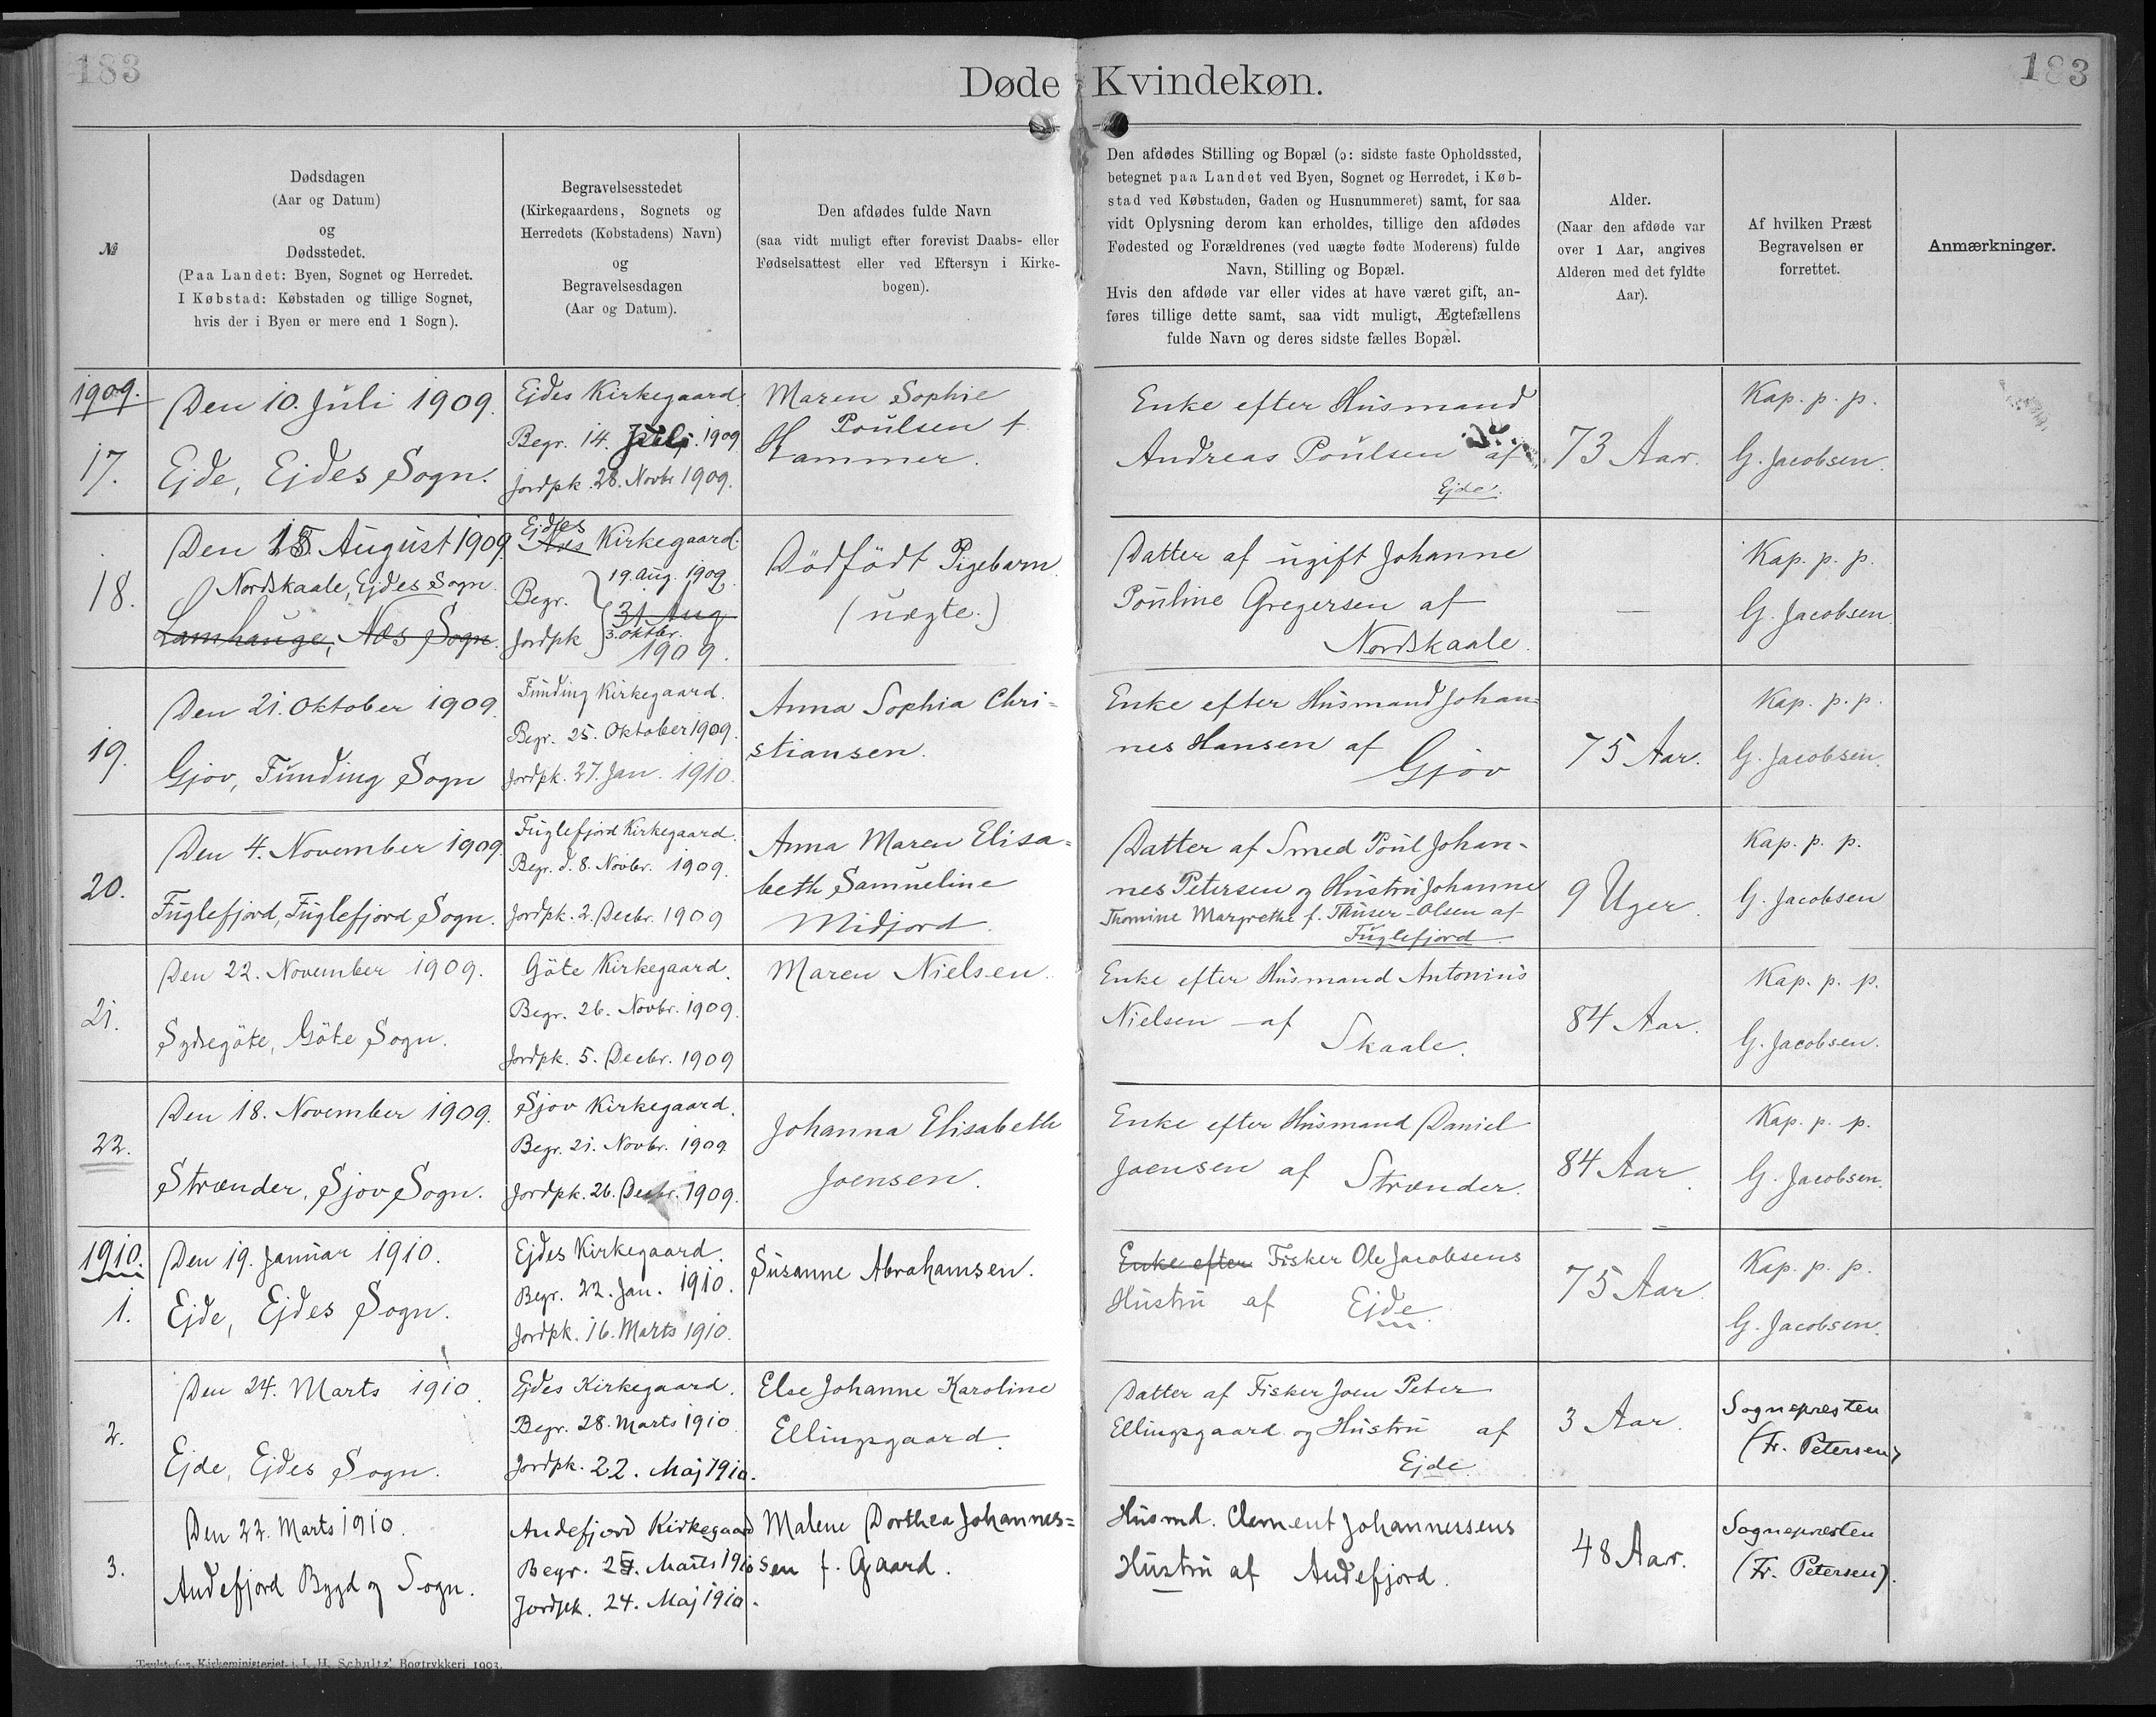 183
183
Døde Kvindekøn.
№
Dødsdagen
(Aar og Datum)
og
Dødsstedet.
(Paa Landet: Byen, Sognet og Herredet.
I Købstad: Købstaden og tillige Sognet,
hvis der i Byen er mere end 1 Sogn).
Begravelsesstedet
(Kirkegaardens, Sognets og
Herredets (Købstadens) Navn)
og
Begravelsesdagen
(Aar og Datum).
Den afdødes fulde Navn
(saa vidt muligt efter forevist Daabs- eller
Fødselsattest eller ved Eftersyn i Kirke-
bogen).
Den afdødes Stilling og Bopæl (ɔ: sidste faste Opholdssted,
betegnet paa Landet ved Byen, Sognet og Herredet, i Køb-
stad ved Købstaden, Gaden og Husnummeret) samt, for saa
vidt Oplysning derom kan erholdes, tillige den afdødes
Fødested og Forældrenes (ved uægte fødte Moderens) fulde
Navn, Stilling og Bopæl.
Hvis den afdøde var eller vides at have været gift, an-
føres tillige dette samt, saa vidt muligt, Ægtefællens
fulde Navn og deres sidste fælles Bopæl.
Alder.
(Naar den afdøde var
over 1 Aar, angives
Alderen med det fyldte
Aar).
Af hvilken Præst
Begravelsen er
forrettet.
Anmærkninger.
1909.
17.
Den 10. Juli 1909.
Ejde, Ejdes Sogn.
Ejdes Kirkegaard.
Begr. 14. Juli. 1909
Jordpk. 28. Novbr 1909.
Maren Sophie
Poulsen f.
Hammer.
Enke efter Husmand
Andreas Poulsen af
Ejde.
73 Aar.
Kap. p. p.
G. Jacobsen.
18.
Den 15. August 1909.
Nordskaale, Ejdes Sogn.
Lamhauge, Næs Sogn.
Ejdes
Næs Kirkegaard.
Begr. 19. Aug. 1909.
31 Aug
Jordpk 3. Oktbr.
1909.
Dödfödt Pigebarn
(uægte.)
Datter af ugift Johanne
Pouline Gregersen af
Nordskaale.
—
Kap. p. p.
G. Jacobsen
19.
Den 21. Oktober 1909.
Gjov, Funding Sogn
Funding Kirkegaard.
Begr. 25. Oktober 1909.
Jordpk. 27. Jan. 1910.
Anna Sophia Chri-
stiansen.
Enke efter Husmand Johan-
nes Hansen af
Gjov
75 Aar.
Kap. p. p.
G. Jacobsen.
20.
Den 4. November 1909.
Fuglefjord, Fuglefjord Sogn.
Fuglefjord Kirkegaard.
Begr. d. 8. Novbr. 1909.
Jordpk. 2. Decbr. 1909
Anna Maren Elisa-
beth Samueline
Midjord.
Datter af Smed Poul Johan-
nes Petersen og Hustru Johanne
Tromine Margrethe f. Thuser-Olsen af
Fuglefjord.
9 Uger.
Kap. p. p.
G. Jacobsen
21.
Den 22. November 1909.
Sydregöte, Göte Sogn.
Göte Kirkegaard.
Begr. 26. Novbr. 1909.
Jordpk. 5. Decbr. 1909
Maren Nielsen.
Enke efter Husmand Antonius
Nielsen af
Skaale.
84 Aar.
Kap. p. p.
G. Jacobsen.
22.
Den 18. November 1909.
Strænder, Sjov Sogn.
Sjov Kirkegaard.
Begr. 21. Novbr. 1909
Jordpk. 26. Decbr. 1909.
Johanna Elisabeth
Joensen.
Enke efter Husmand Daniel
Joensen af Strænder.
84 Aar.
Kap. p. p.
G. Jacobsen.
1910.
1.
Den 19. Januar 1910.
Ejde, Ejdes Sogn.
Ejdes Kirkegaard.
Begr. 22. Jan. 1910.
Jordpk. 16. Marts 1910.
Susanne Abrahamsen.
Enke efter Fisker Ole Jacobsens
Hustru af Ejde.
75 Aar
Kap. p. p.
G. Jacobsen.
2.
Den 24. Marts 1910.
Ejde, Ejdes Sogn.
Ejdes Kirkegaard.
Begr. 28. Marts 1910
Jordpk. 22. Maj 1910.
Else Johanne Karoline
Ellingsgaard.
Datter af Fisker Joen Peter
Ellingsgaard og Hustru af
Ejde.
3 Aar.
Sognepresten
(Fr. Petersen)
3.
Den 22. Marts 1910.
Andefjord Bygd og Sogn.
Andefjord Kirkegaard
Begr. Marts 1910
Jordpk. 24. Maj 1910.
Malene Dorthea Johannes-
sen f. Gaard.
Husmd. Clement Johannessens
Hustru af Andefjord.
48 Aar.
Sognepresten
(Fr. Petersen).
Trykt for Kirkeministeriet i J. H. Schultz' Bogtrykkeri 1903.